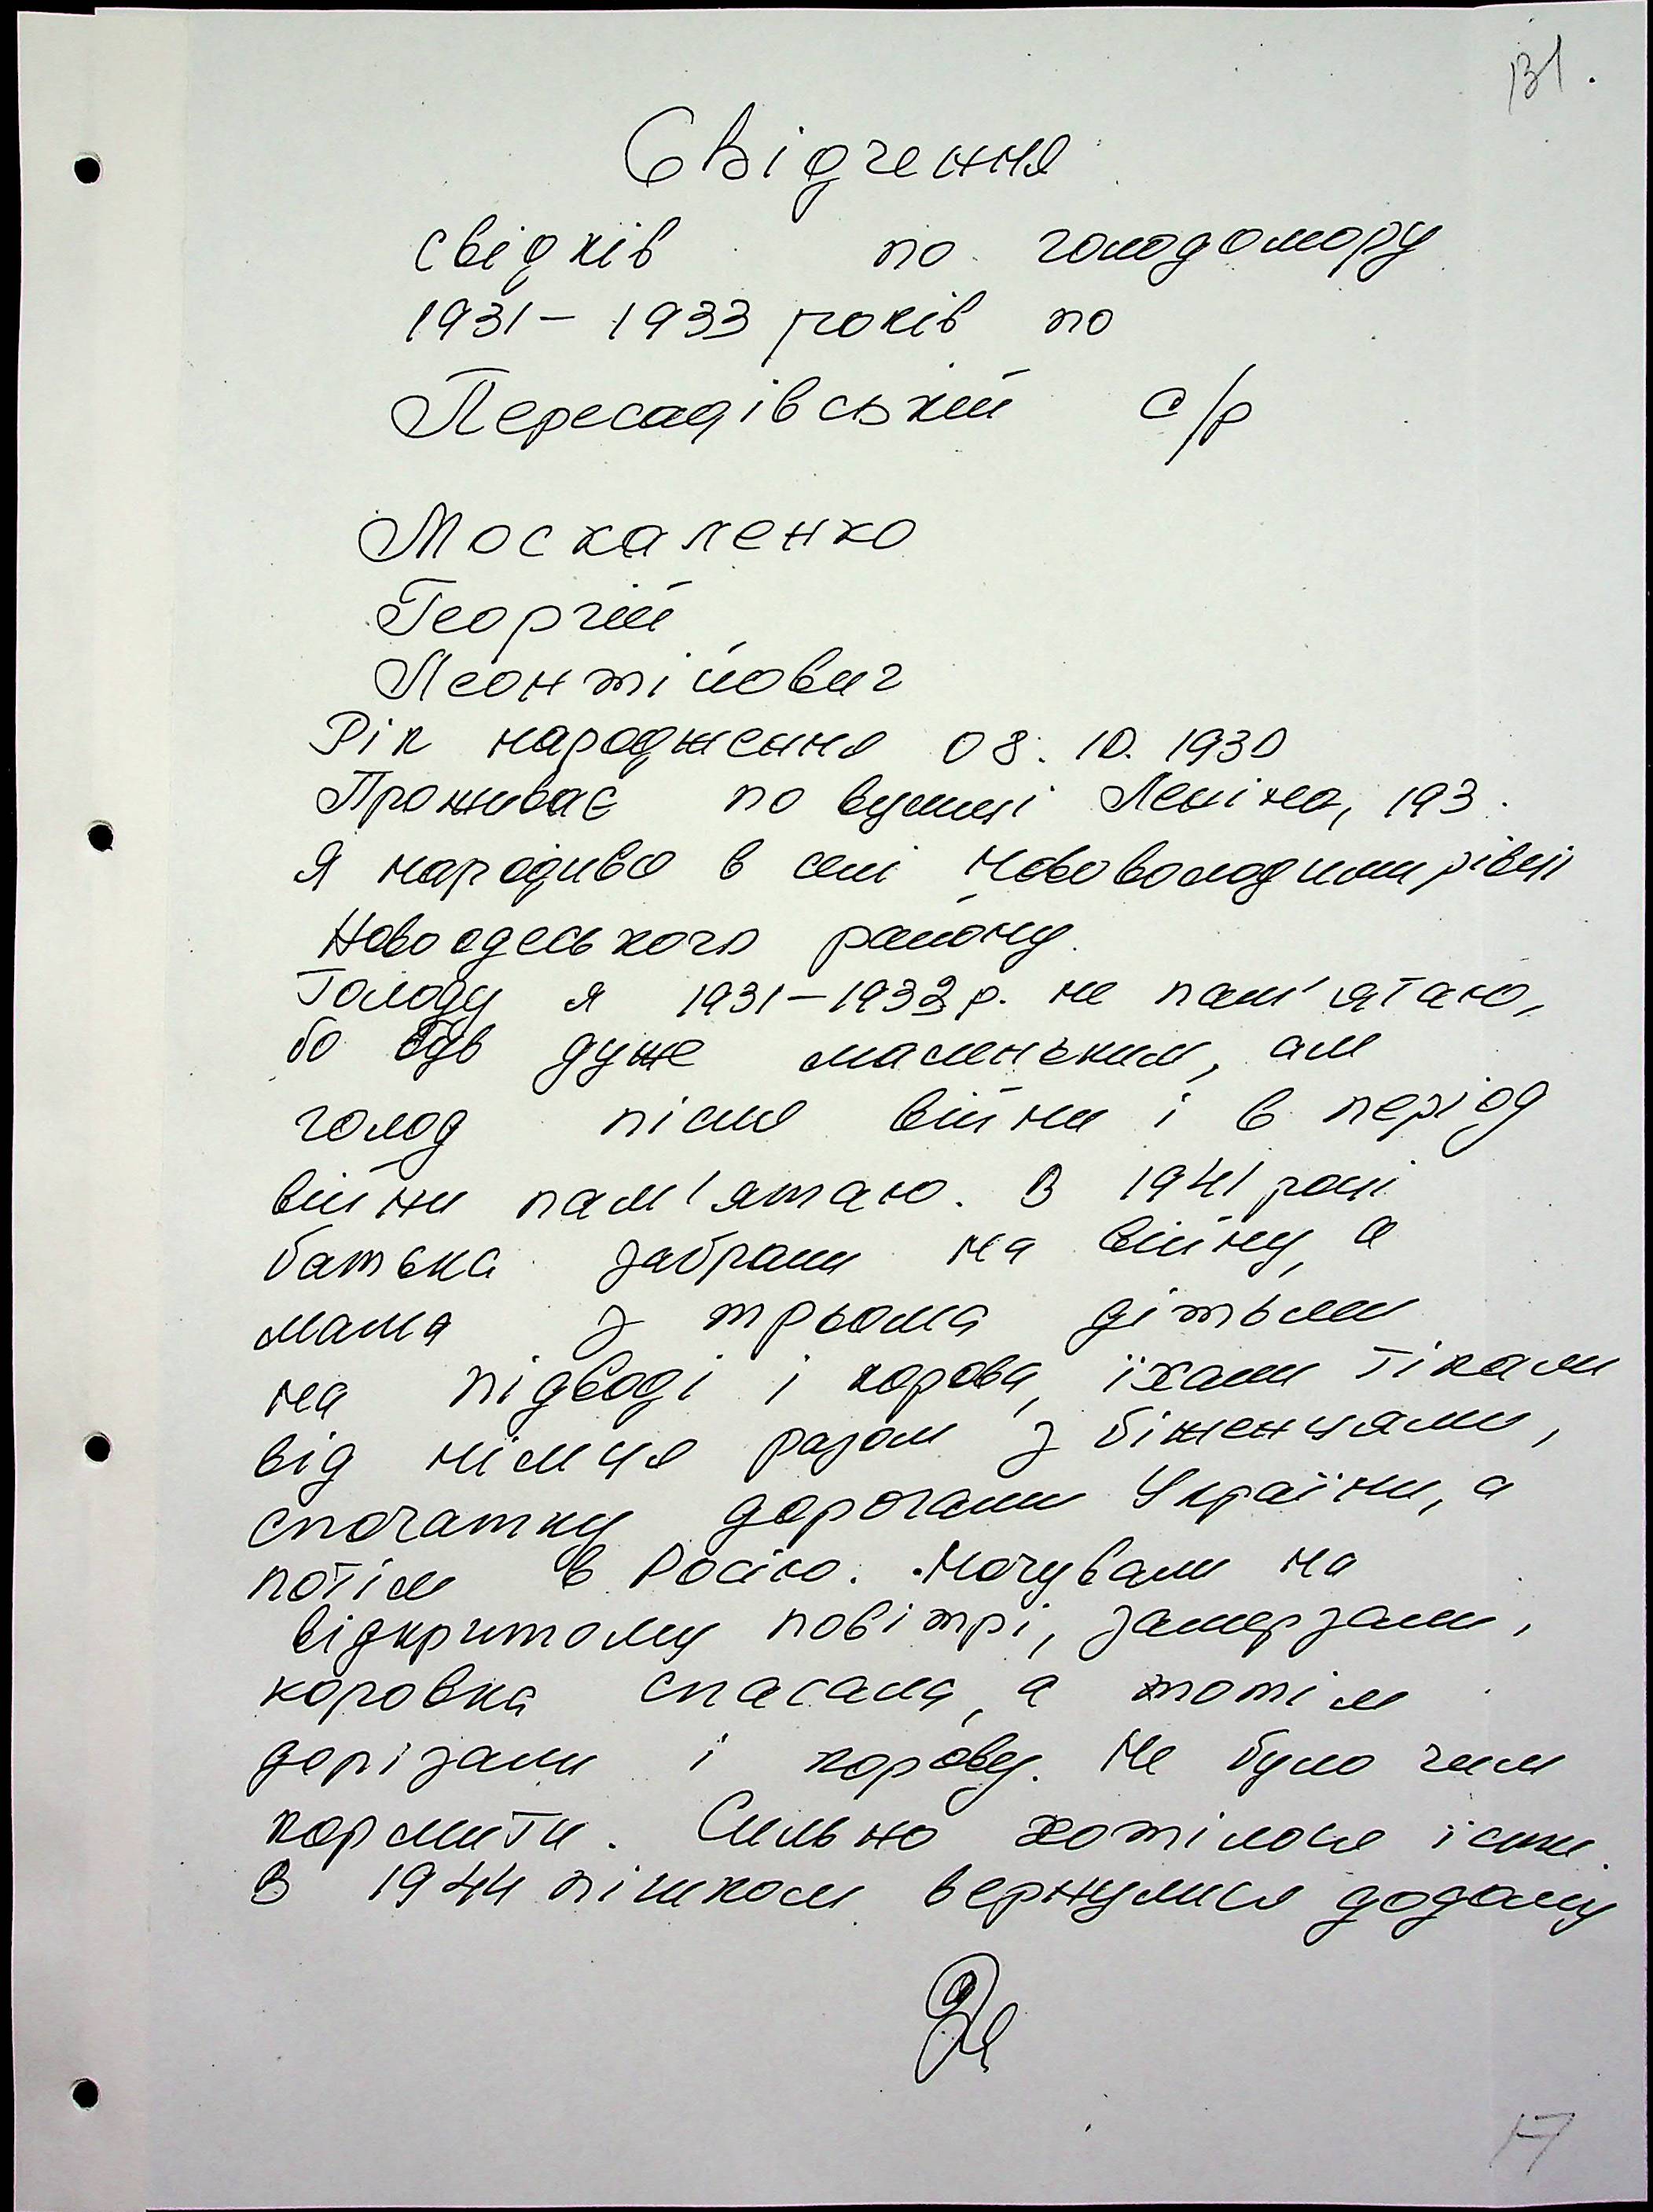 131.
Свідчення
свідків по голодомору
1931 – 1933 років по
Пересадівській с/р
Москаленко
Георгій
Леонтійович
Рік народження 08. 10. 1930
Проживає по вулиці Леніна, 193.
Я народивсь в селі Нововолодимирівці
Новоодеського району.
Голоду я 1931 – 1933 р. не пам'ятаю,
бо був дуже маленьким, але
голод після війни і в період
війни пам'ятаю. В 1941 році
батька забрали на війну, а
мама з трьома дітьми
на підводі і корова, їхали тікали
від німця разом з біженцями,
спочатку дорогами України, а
потім в Росію. Ночували на
відкритому повітрі, замерзали,
коровка спасала, а потім
дорізали і корову. Не було чим
кормити. Сильно хотілося їсти.
В 1944 пішком вернулися додому
17